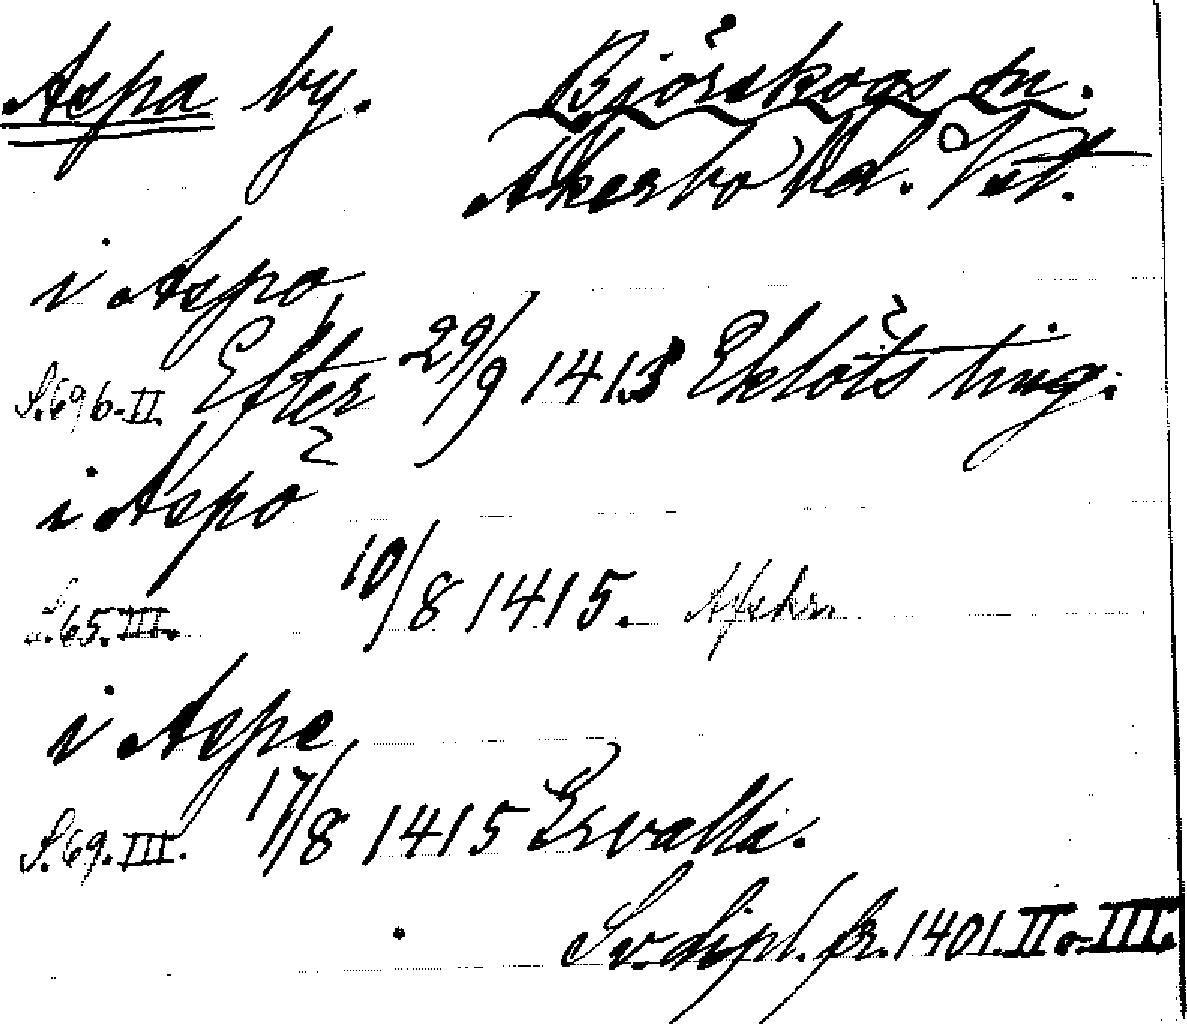 Aspa by. Björskogs sn.
Åkerbo hd. Vstm.
i Aspa,
S. 696-II. Efter 29/9 1413 Eklöts ting.
i Aspo
S. 65. III. 10/8 1415. Afskr.
i Aspe
S. 69. III. 17/8 1415 Ervalla.
Sv. dipl. fr. 1401. II o. III.